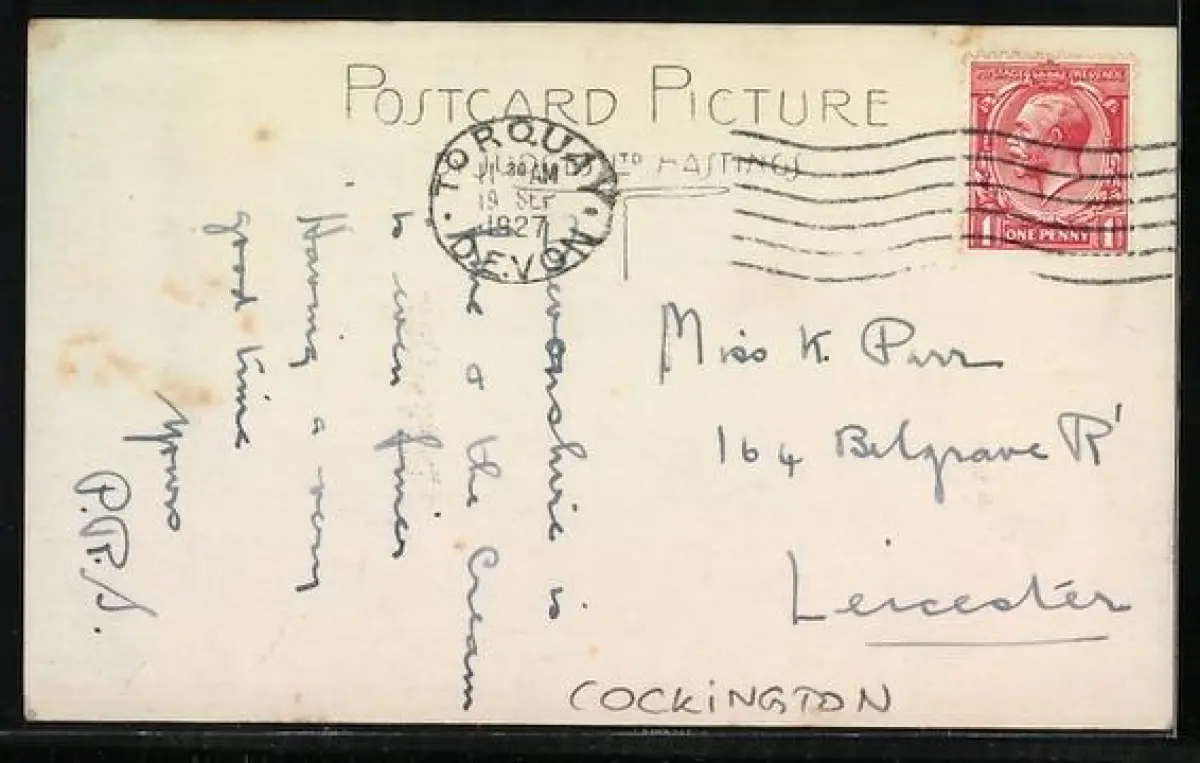 POSTCARD PICTURE
LTD HASTINGS
TORQUAY
11 30 AM
19 SEP
1927
DEVON
POSTAGE REVENUE
1 ONE PENNY 1
Devonshire is
fine & the Cream
is even finer
Having a very
good time
Yours
P.R.S.
Miss K. Parr
164 Belgrave Rd
Leicester
COCKINGTON